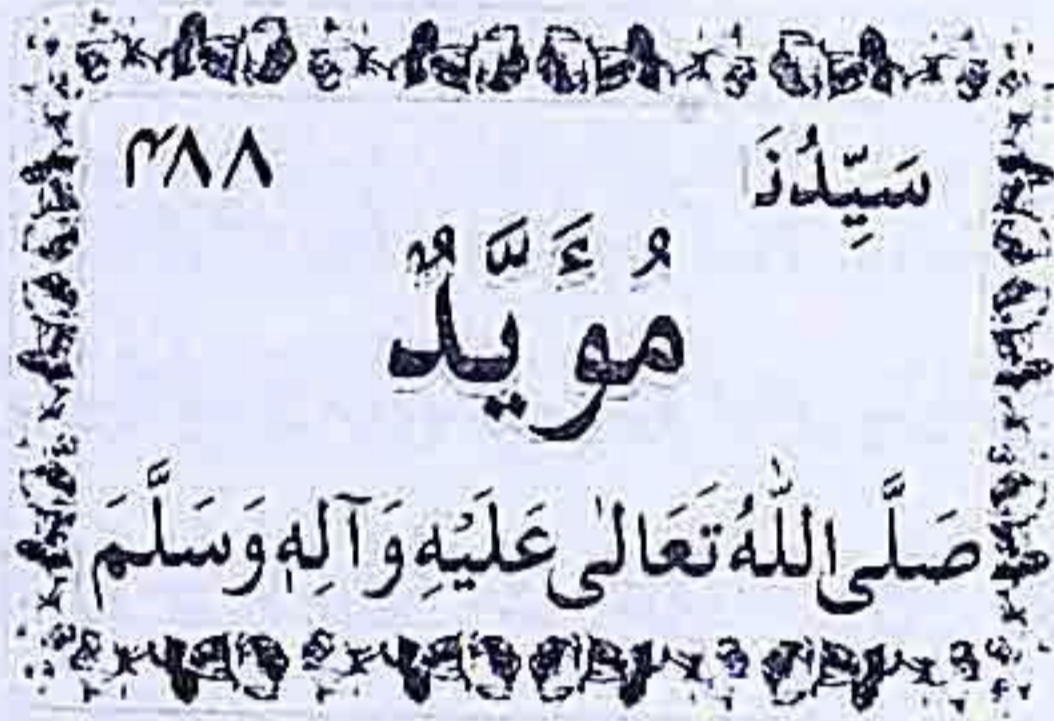 سَيِّدُنَا ۴۸۸
مُؤَيَّدٌ
صَلَّى اللّٰهُ تَعَالٰی عَلَيْهِ وَآلِهٖ وَسَلَّمَ